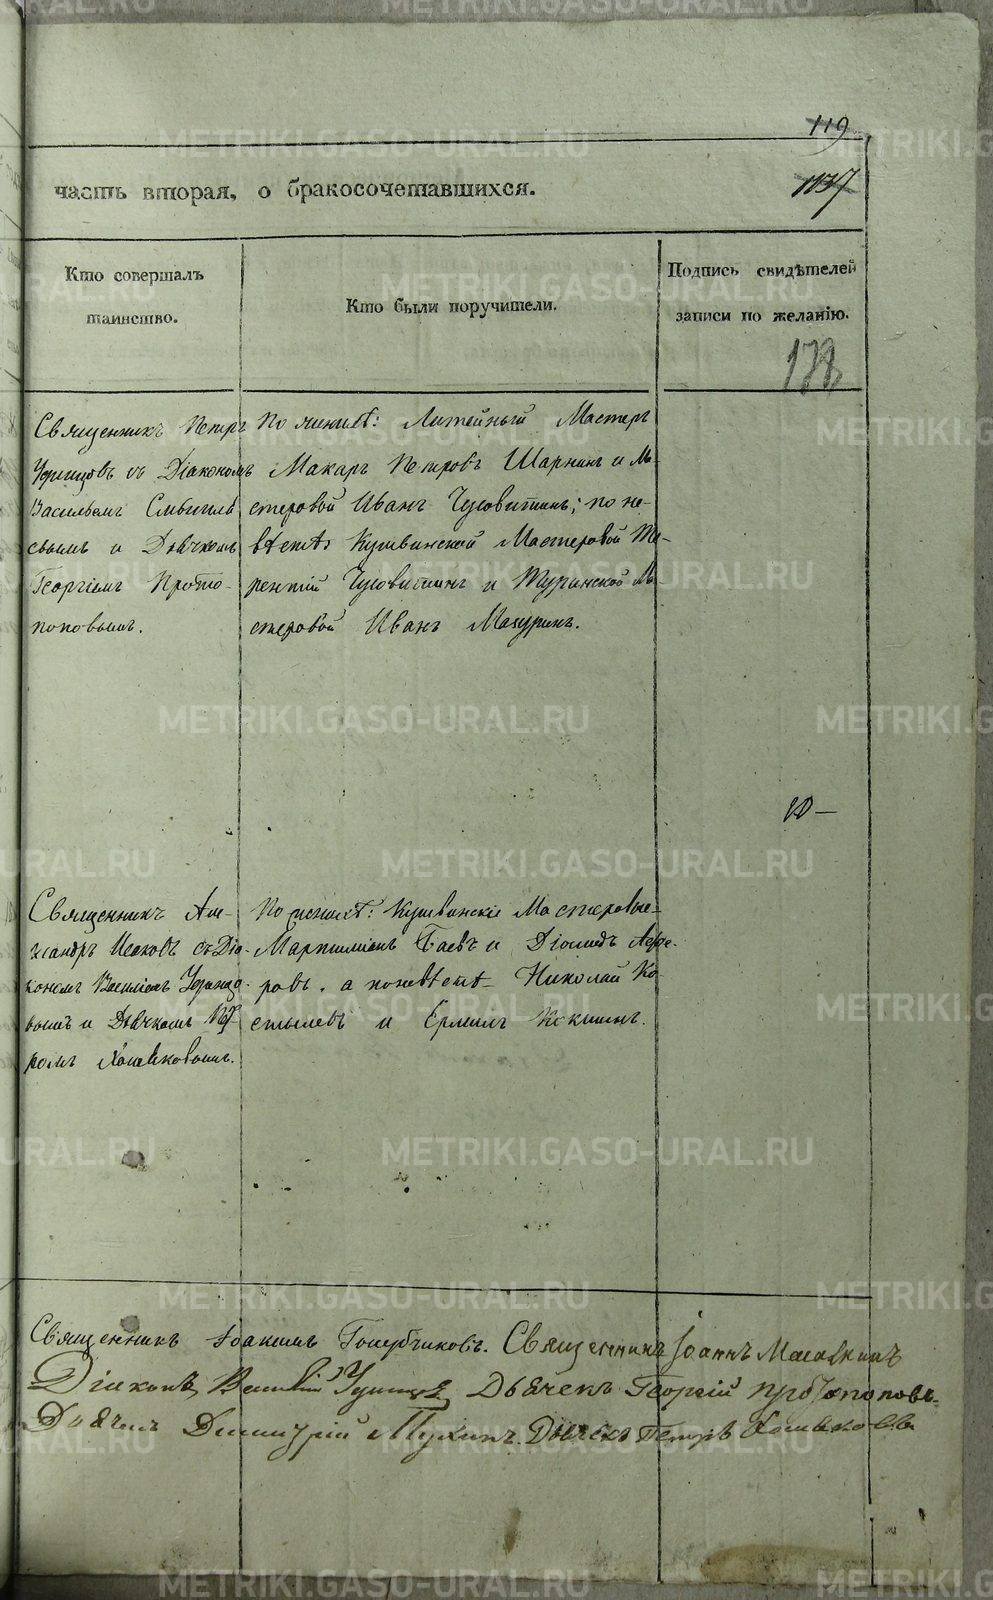 119
1137
часть вторая, о бракосочетавшихся.
Кто совершалъ
таинство.
Кто были поручители.
Подпись свидѣтелей
записи по желанію.
178
Священникъ Петръ
съ Діакономъ
Васильемъ
и Дьячкомъ
Георгіемъ Прото-
поповымъ.
По женихѣ: Литейный Мастеръ
Макаръ Петровъ Шарнинъ и Ма-
стеровой Иванъ Чусовитинъ; по не-
вѣстѣ Кушвинской Мастеровой Те-
рентій Чусовитинъ и Туринской Ма-
стеровой Иванъ Мазуринъ.
Священникъ Але-
ксандръ Исаковъ съ Діа-
кономъ Василіемъ
вымъ и Дьячкомъ Пет-
ромъ Хомяковымъ.
По женихѣ: Кушвинскіе Мастеровые
Мартиміянъ Баевъ и Діомидъ
ровъ. а поневѣстѣ Николай Ко-
стылевъ и Ермилъ Кокшинъ.
Священникъ Іоакимъ Голубчиковъ. Священникъ Іоаннъ
Діаконъ Василій Дьячекъ Георгій Протопоповъ
Дьячекъ Димитрій Мухинъ. Дьячекъ Петръ Хомяковъ
METRIKI.GASO-URAL.RU